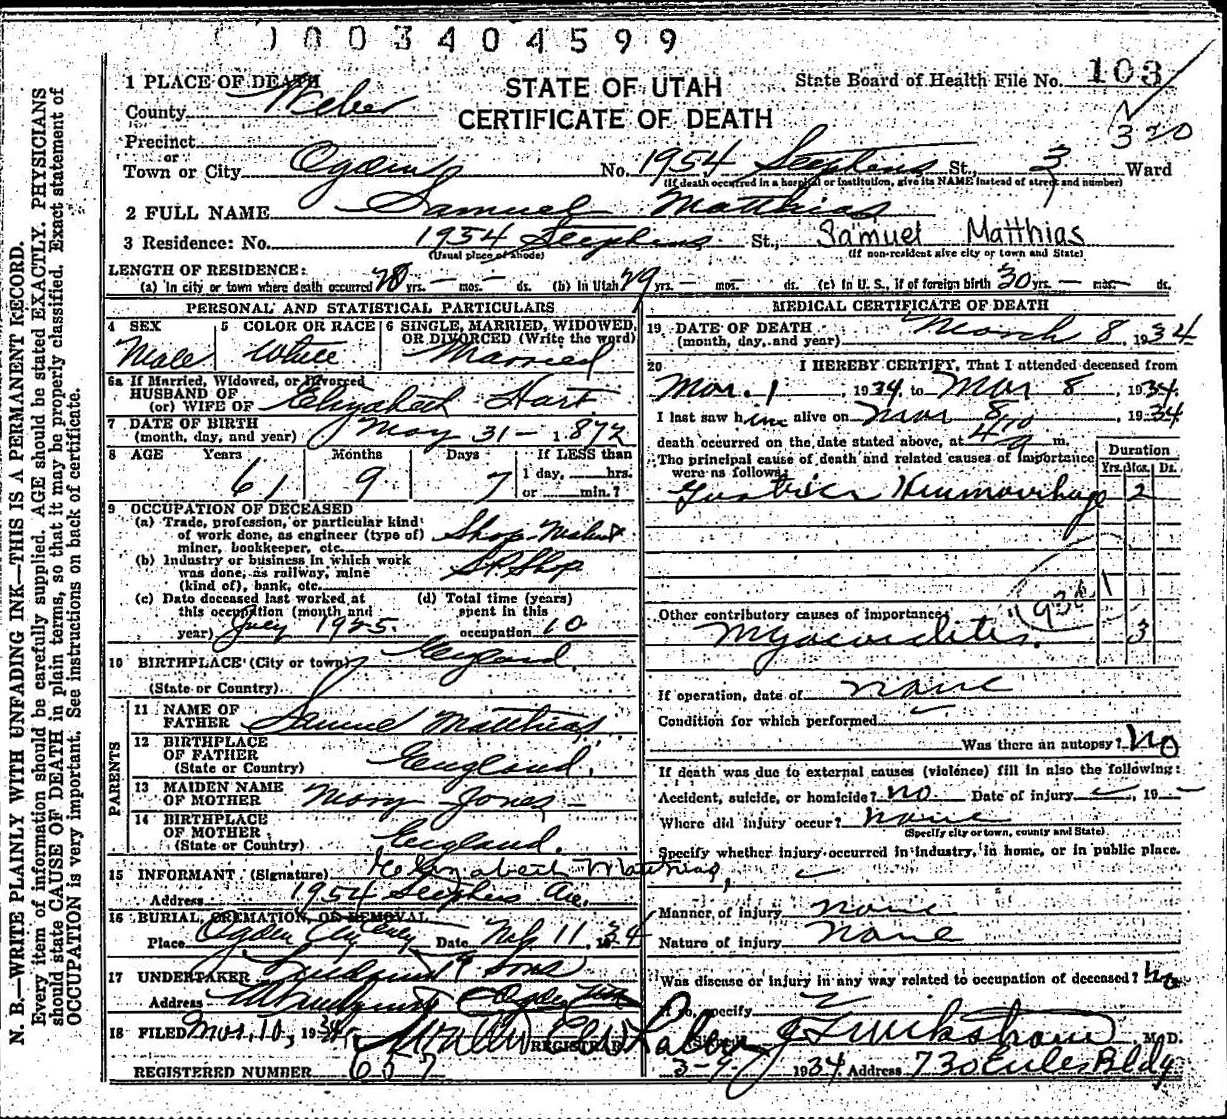 0003404599
1 PLACE OF DEATH
STATE OF UTAH
CERTIFICATE OF DEATH
State Board of Health File No. 103
320
County Weber
Precinct
or
Town or City Ogden No. 1954 Stephens St., 3 Ward
(If death occurred in a hospital or institution, give its NAME instead of street and number)
2 FULL NAME Samuel Matthias
3 Residence: No. 1954 Stephens St., Samuel Matthias
(Usual place of abode) (If non-resident give city or town and State)
LENGTH OF RESIDENCE:
(a) In city or town where death occurred yrs. — mos. — ds. (b) In Utah 29 yrs. — mos. ds. (c) In U. S., if of foreign birth 30 yrs. — mos. — ds.
PERSONAL AND STATISTICAL PARTICULARS
4 SEX Male
5 COLOR OR RACE White
6 SINGLE, MARRIED, WIDOWED, OR DIVORCED (Write the word) Married
6a If Married, Widowed, or Divorced
HUSBAND OF
(or) WIFE OF Elizabeth Hart
7 DATE OF BIRTH
(month, day, and year) May 31 - 1872
8 AGE Years 61 Months 9 Days 7 If LESS than 1 day, hrs. or min.?
9 OCCUPATION OF DECEASED
(a) Trade, profession, or particular kind of work done, as engineer (type of) miner, bookkeeper, etc. Shop
(b) Industry or business in which work was done, as railway, mine (kind of), bank, etc. S.P. Shop
(c) Date deceased last worked at this occupation (month and year) July 1925
(d) Total time (years) spent in this occupation 10
10 BIRTHPLACE (City or town) England.
(State or Country)
PARENTS
11 NAME OF FATHER Samuel Matthias
12 BIRTHPLACE OF FATHER (State or Country) England.
13 MAIDEN NAME OF MOTHER Mary Jones
14 BIRTHPLACE OF MOTHER (State or Country) England.
15 INFORMANT (Signature) Elizabeth Matthias
Address 1954 Stephens Ave.
16 BURIAL, CREMATION, OR REMOVAL
Place Ogden City Date 11, 1934
17 UNDERTAKER & Sons
Address Ogden Utah
18 FILED Mar. 10, 1934
REGISTRAR
REGISTERED NUMBER 657
MEDICAL CERTIFICATE OF DEATH
19 DATE OF DEATH
(month, day, and year) March 8, 1934
20 I HEREBY CERTIFY, That I attended deceased from
Mar. 1, 1934, to Mar 8, 1934.
I last saw him alive on Mar 8, 1934
death occurred on the date stated above, at m.
The principal cause of death and related causes of importance were as follows:
Duration
Yrs. Mos. Ds.
Gastric Heumorrhage 2
Other contributory causes of importance:
Myocarditis. 3
If operation, date of none
Condition for which performed
Was there an autopsy? No
If death was due to external causes (violence) fill in also the following:
Accident, suicide, or homicide? no Date of injury , 19
Where did injury occur? none
(Specify city or town, county and State)
Specify whether injury occurred in industry, in home, or in public place.
Manner of injury none
Nature of injury none
Was disease or injury in any way related to occupation of deceased? No
If so, specify
(Signed) M.D.
3-9- 1934 Address 730 Eccles Bldg
N. B.—WRITE PLAINLY WITH UNFADING INK—THIS IS A PERMANENT RECORD.
Every item of information should be carefully supplied. AGE should be stated EXACTLY. PHYSICIANS
should state CAUSE OF DEATH in plain terms, so that it may be properly classified. Exact statement of
OCCUPATION is very important. See instructions on back of certificate.